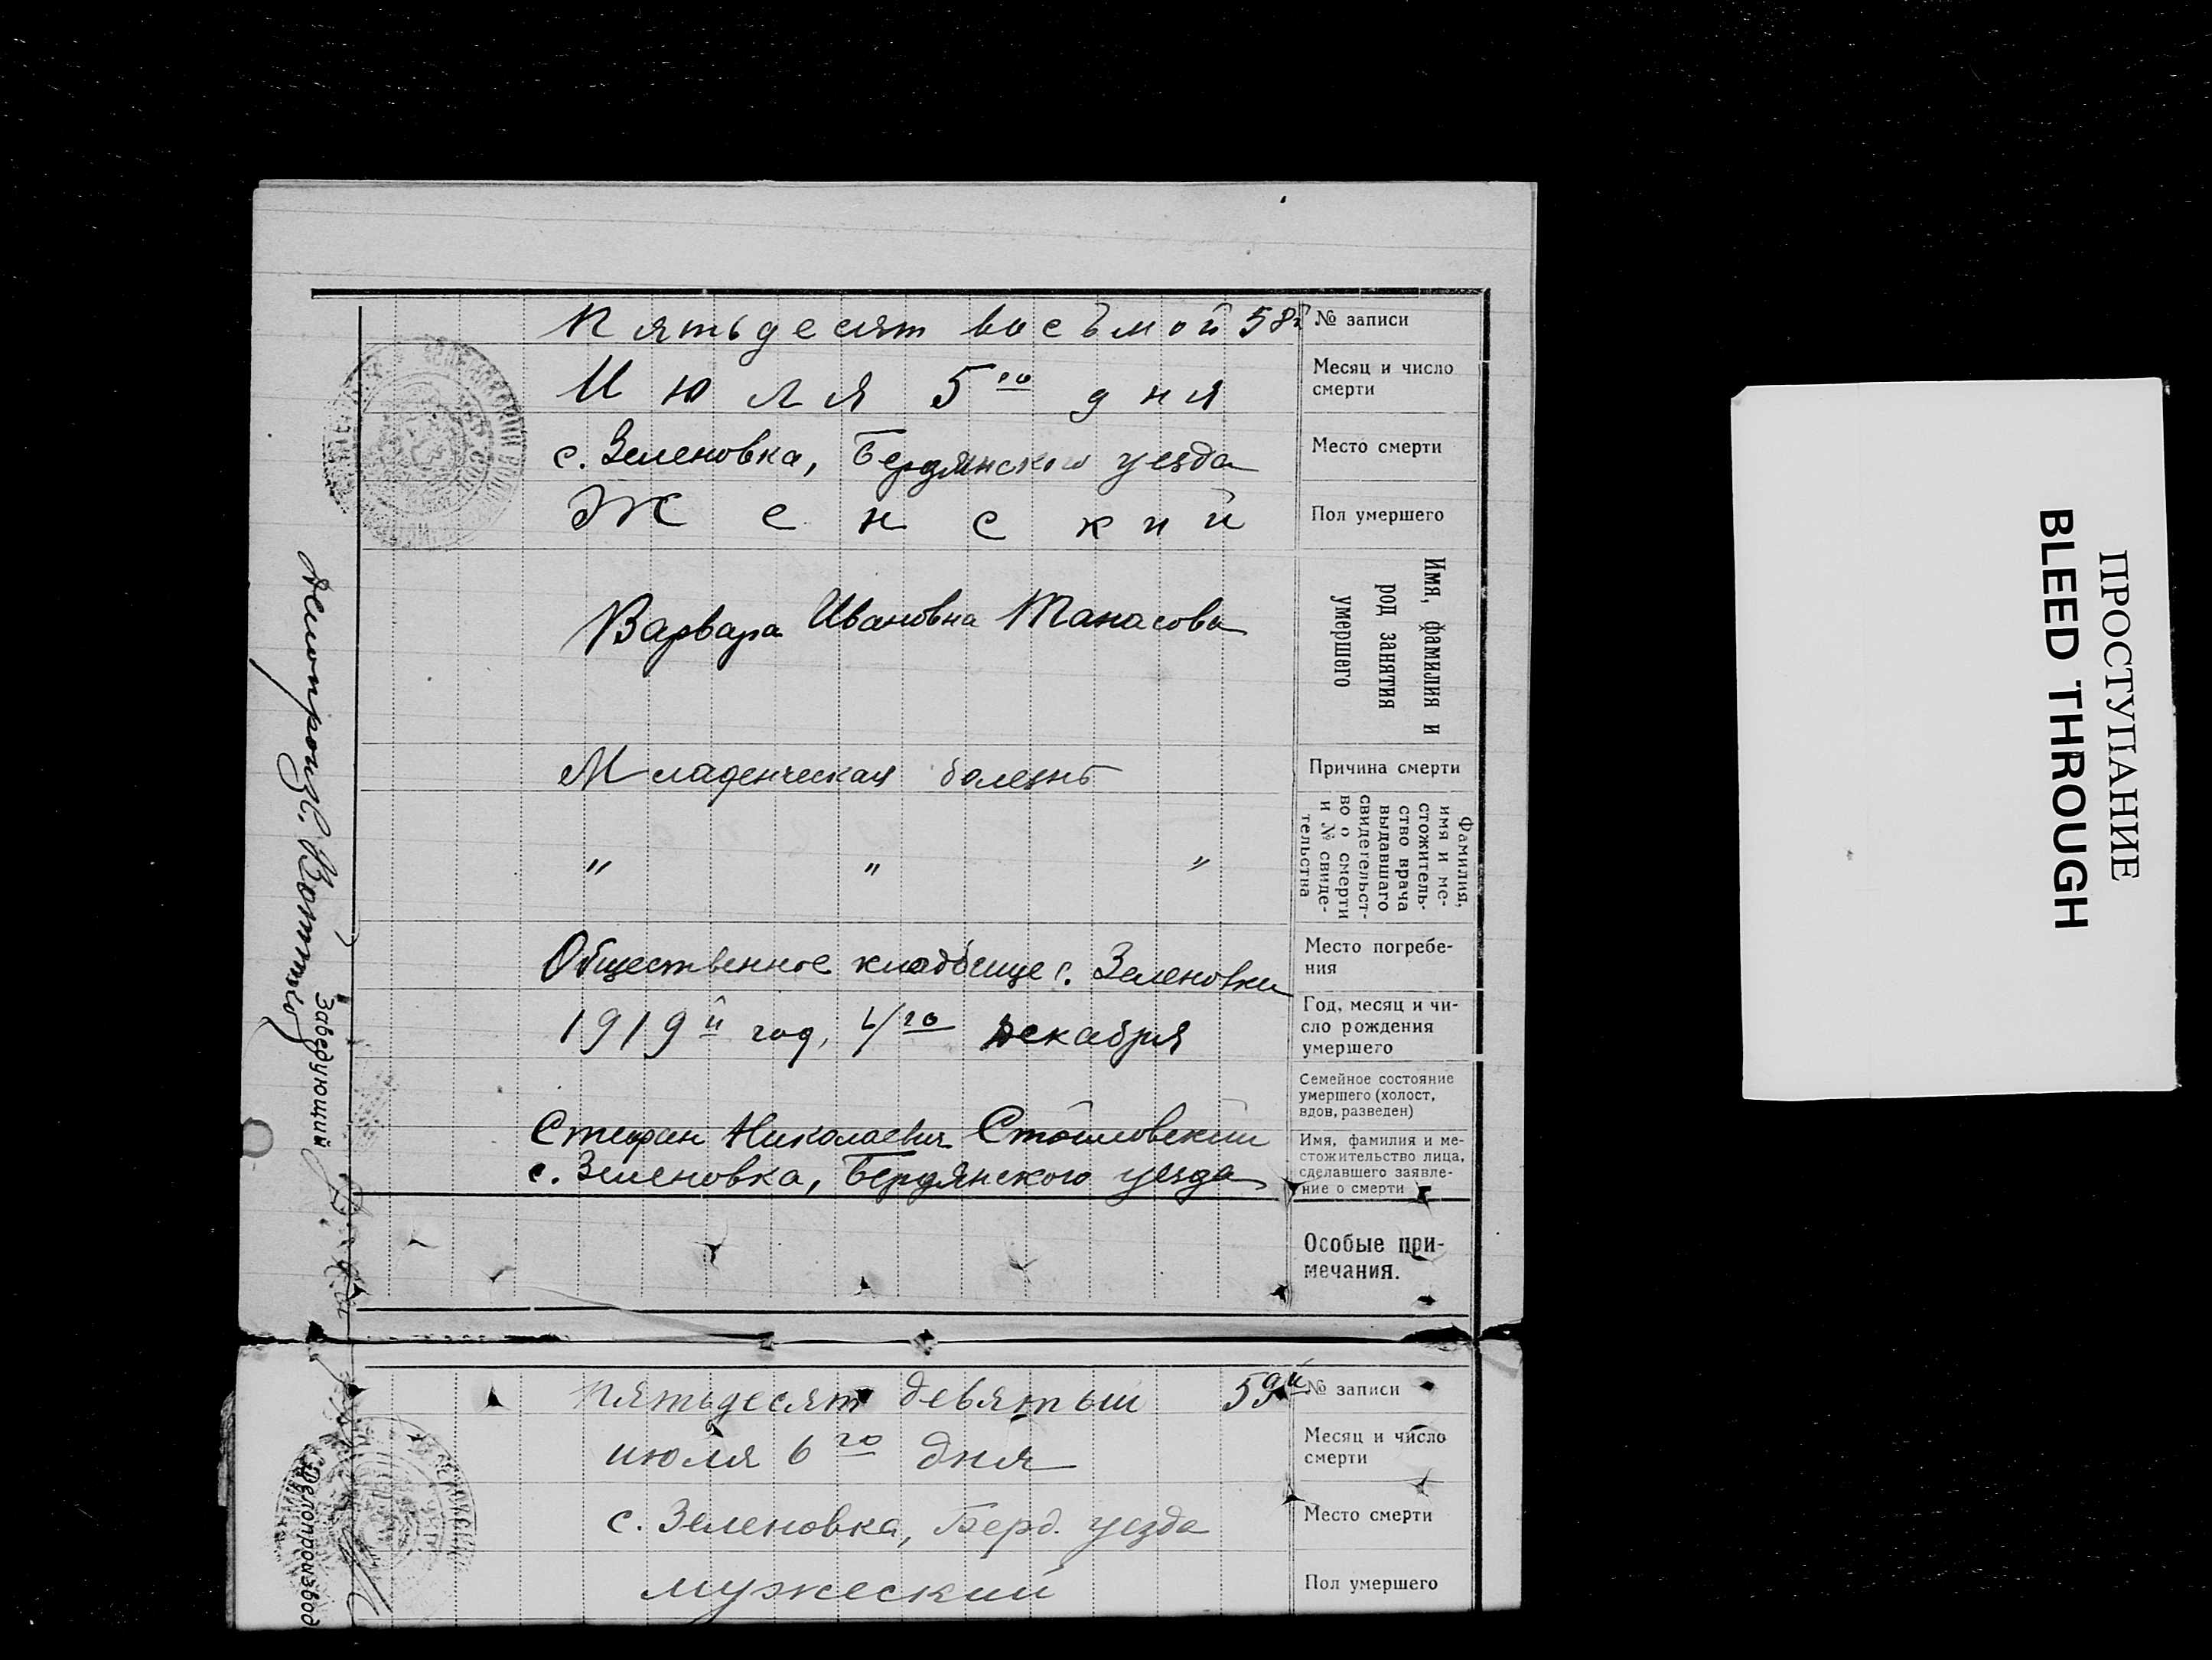 Пятьдесят восъмой 58й № записи
Июля 5го дня Месяц и число
смерти
с. Зеленовка, Бердянского уезда Место смерти
Женский Пол умершего
Варвара Ивановна Танасова Имя, фамилия и
род занятия
умершего
Младенческая болезнь Причина смерти
" " " Фамилия,
имя и ме-
стожитель-
ство врача
выдавшаго
свидетельст-
во о смерти
и № свиде-
тельства
Общественное кладбище с. Зеленовки Место погребе-
ния
1919й год, 4го декабря Год, месяц и чи-
сло рождения
умершего
Семейное состояние
умершего (холост,
вдов, разведен)
Стефан Николаевич Имя, фамилия и ме-
стожительство лица,
с. Зеленовка, Бердянского уезда сделавшего заявле-
ние о смерти
Особые при-
мечания.
Делопроизв.
Заведующий
Пятьдесят девятый 59й № записи
июля 6го дня Месяц и число
смерти
с. Зеленовка, Берд. уезда Место смерти
мужеский Пол умершего
Делопроизвод
ПРОСТУПАНИЕ
BLEED THROUGH